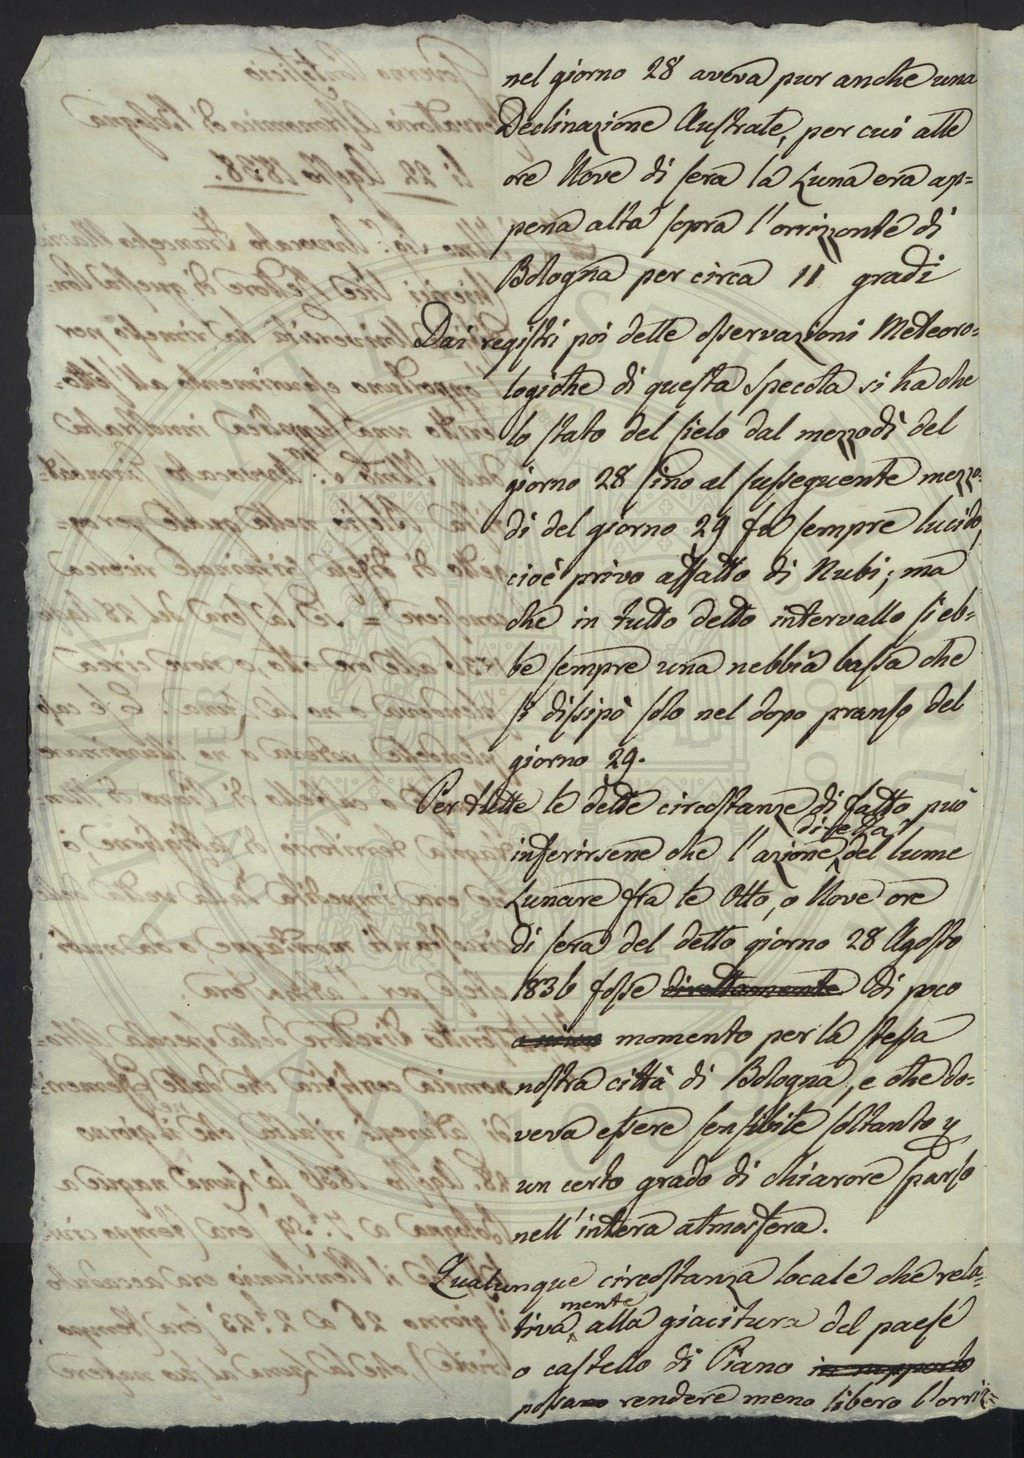 nel giorno 28 aveva pur anche una
Declinazione Australe, per cui alle
ore Nove di sera la Luna era ap=
pena alta sopra l'orrizzonte di
Bologna per circa 11 gradi
Dai registri poi delle osservazioni Meteoro=
logiche di questa Specola si ha che
lo stato del Cielo dal mezzodì del
giorno 28 sino al susseguente mezzo-
dì del giorno 29 fu sempre lucido,
cioè privo affatto di Nubi; ma
che in tutto detto intervallo si eb=
be sempre una nebbia bassa che
si dissipò solo nel dopo pranso del
giorno 29.
Per tutte le dette circostanze di fatto può
inferirsene che l'azione diretta del lume
Lunare fra le Otto, o Nove ore
di sera del detto giorno 28 Agosto
1836 fosse direttamente di poco
momento per la stessa
nostra città di Bologna, e che do=
veva essere sensibile soltanto p
un certo grado di chiarore sparso
nell'intera atmosfera.
Qualunque circostanza locale che rela=
tivamente alla giacitura del paese
o castello di Piano in rapporto
possa rendere meno libero l'orriz=